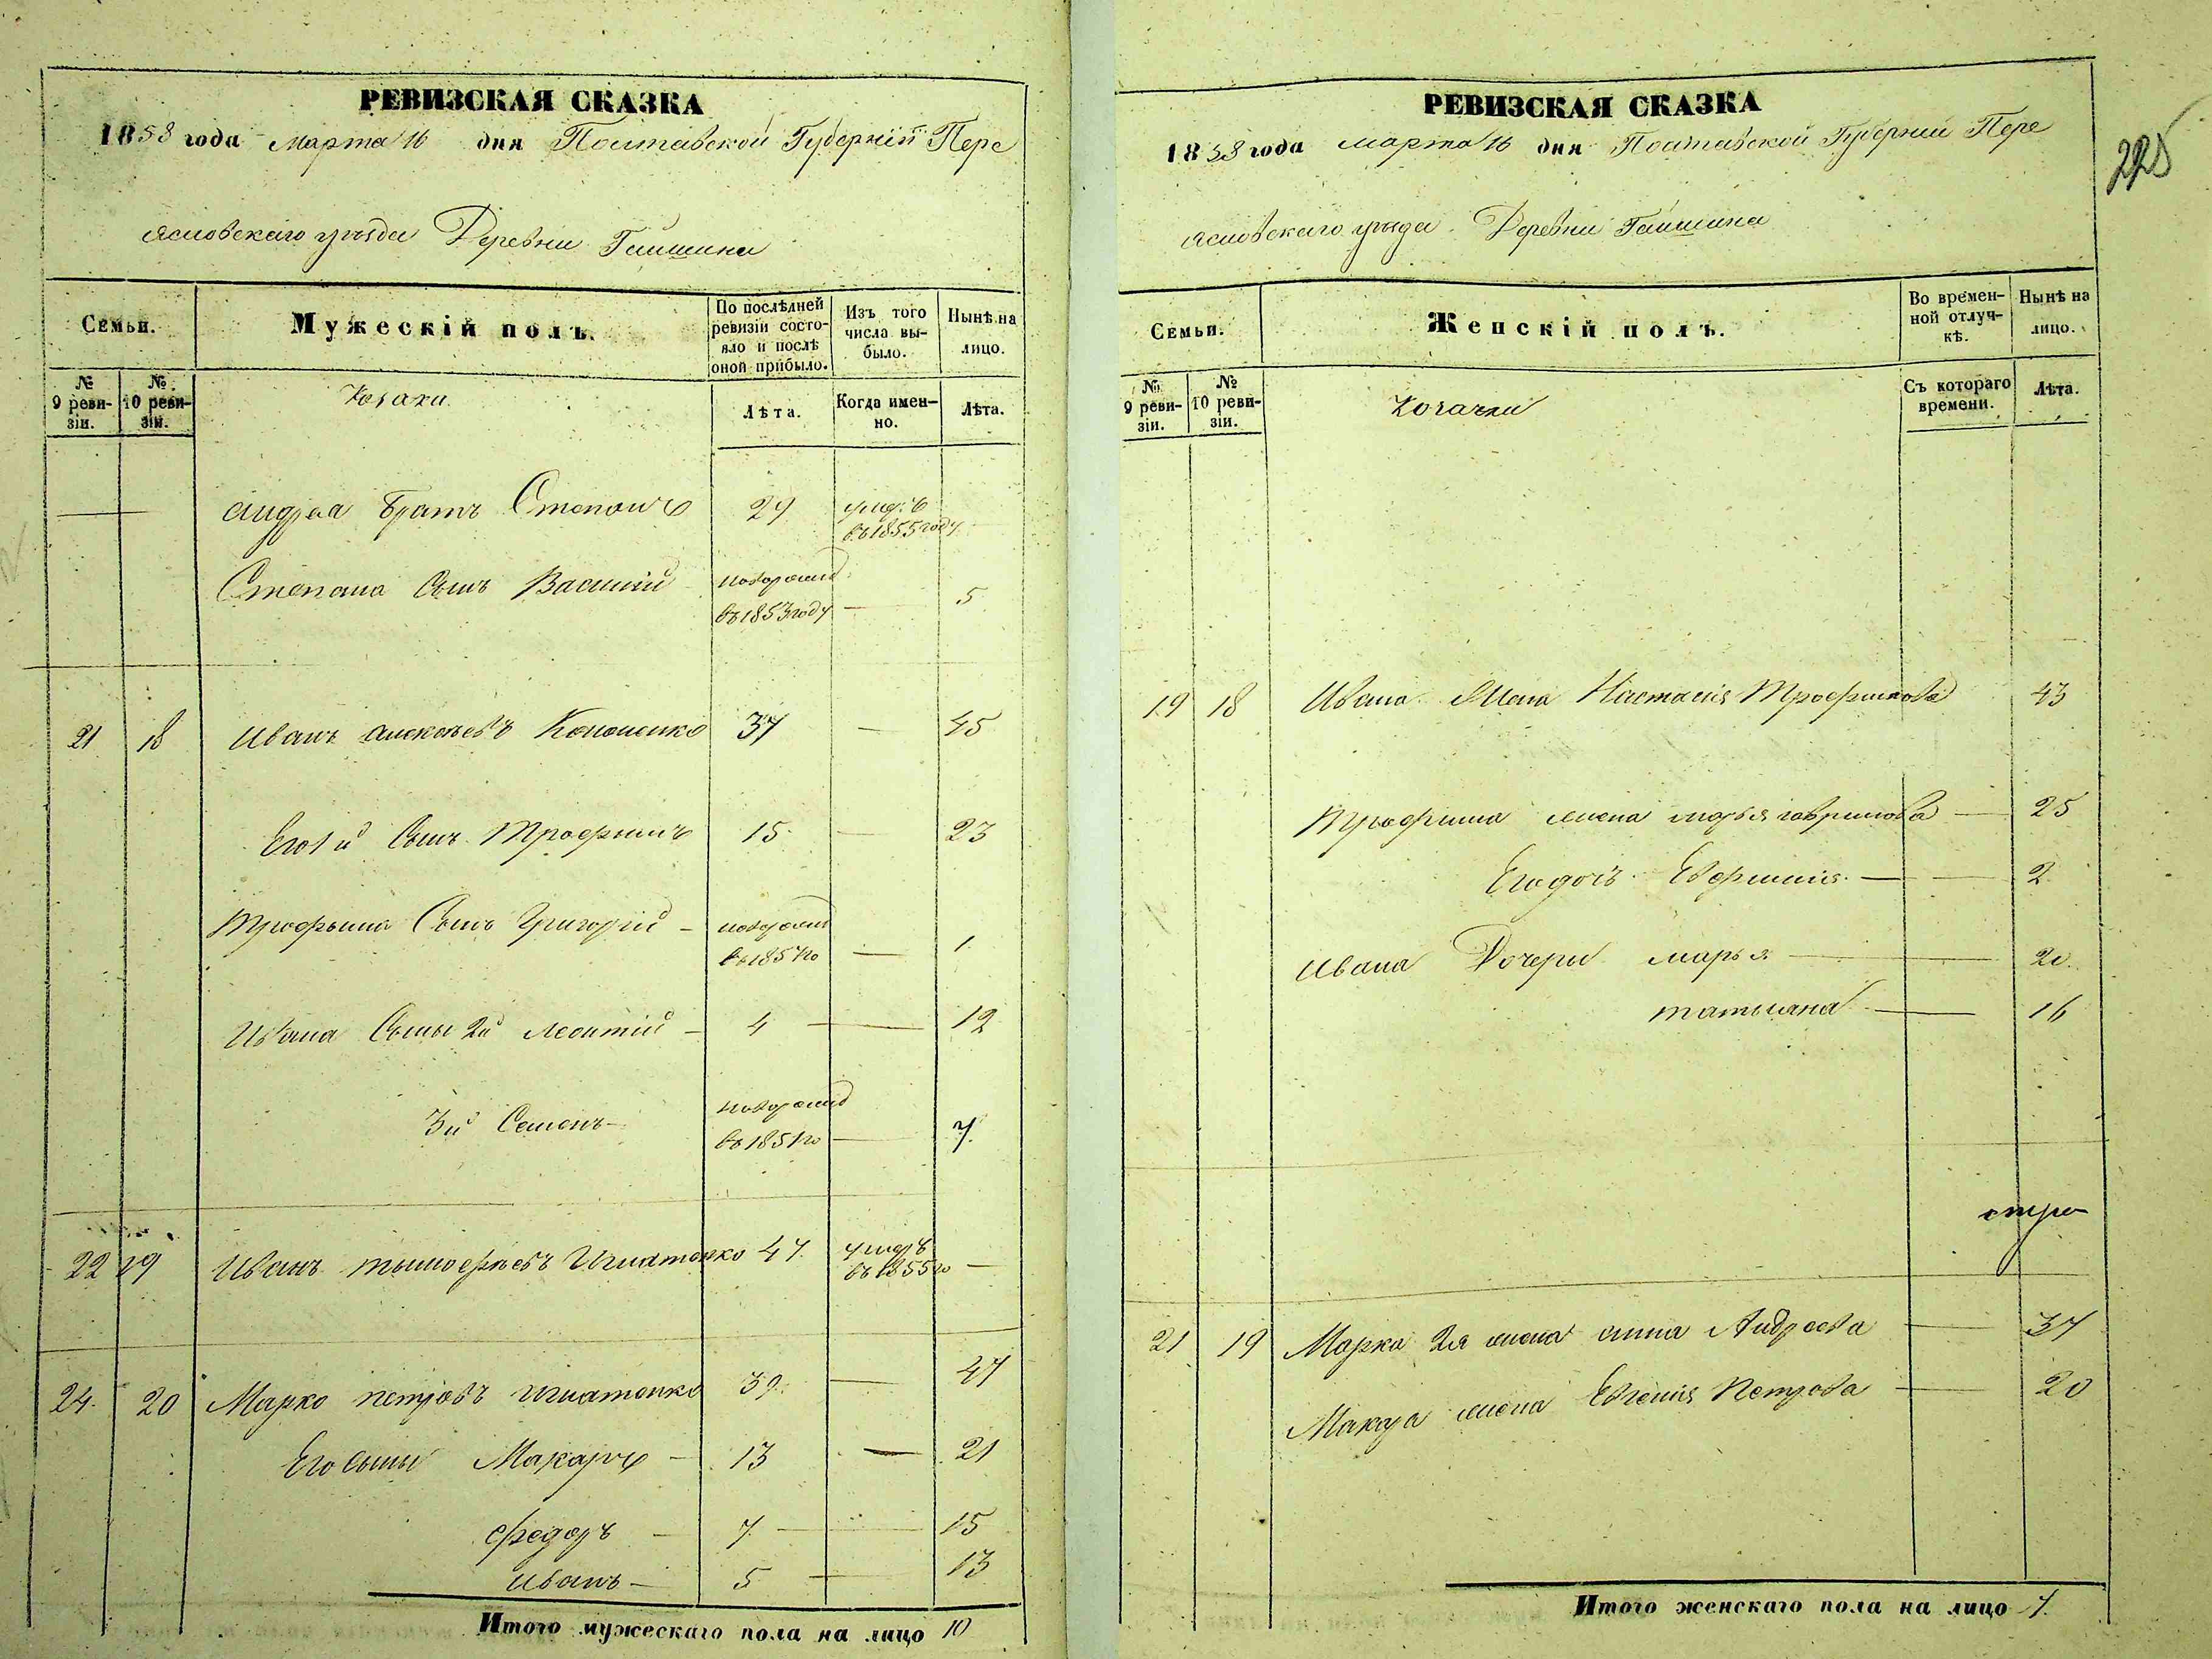 РЕВИЗСКАЯ СКАЗКА
1858 года марта 16 дня Полтавской Губерніи Пере
яславскаго уѣзда Деревни Гайшина
Семьи.
Мужескій полъ.
По послѣдней ревизіи состояло и послѣ оной прибыло.
Изъ того числа выбыло.
Нынѣ на лицо.
№ 9 ревизіи.
№ 10 ревизіи.
Козаки
Лѣта.
Когда именно.
Лѣта.
Андрея братъ Степанъ 29 умеръ въ 1855 году
Степана Сынъ Василий новорожд въ 1853 году — 5
21 18 Иванъ Алексѣевъ Кононенко 37 — 45
Его 1й Сынъ Трофимъ 15 — 23
Трофима Сынъ Григорій — новорожд въ 1857 го — 1
Ивана Сыны 2й Леонтій — 4 — 12
3й Семенъ — новорожд въ 1851 го — 7
22 19 Иванъ Тимофѣевъ Игнатенко 47 умеръ въ 1855 го —
24 20 Марко Петровъ Игнатенко 39 — 47
Его сыны Макаръ — 13 — 21
Федоръ — 7 — 15
Иванъ — 5 — 13
Итого мужескаго пола на лицо 10
РЕВИЗСКАЯ СКАЗКА
225
1858 года марта 16 дня Полтавской Губерніи Пере
яславскаго уѣзда Деревни Гайшина
Семьи.
Женскій полъ.
Во временной отлучкѣ.
Нынѣ на лицо.
№ 9 ревизіи.
№ 10 ревизіи.
Козачки
Съ котораго времени.
Лѣта.
19 18 Ивана Жена Настасия Трофимова 43
Трофима жена Марья Гаврилова — 25
Его дочь Евфимия — 2
Ивана Дочери Марья — 20
Татьяна — 16
21 19 Марка 2я жена Анна Андреева — 37
Макара жена Евгения Петрова — 20
Итого женскаго пола на лицо 7.